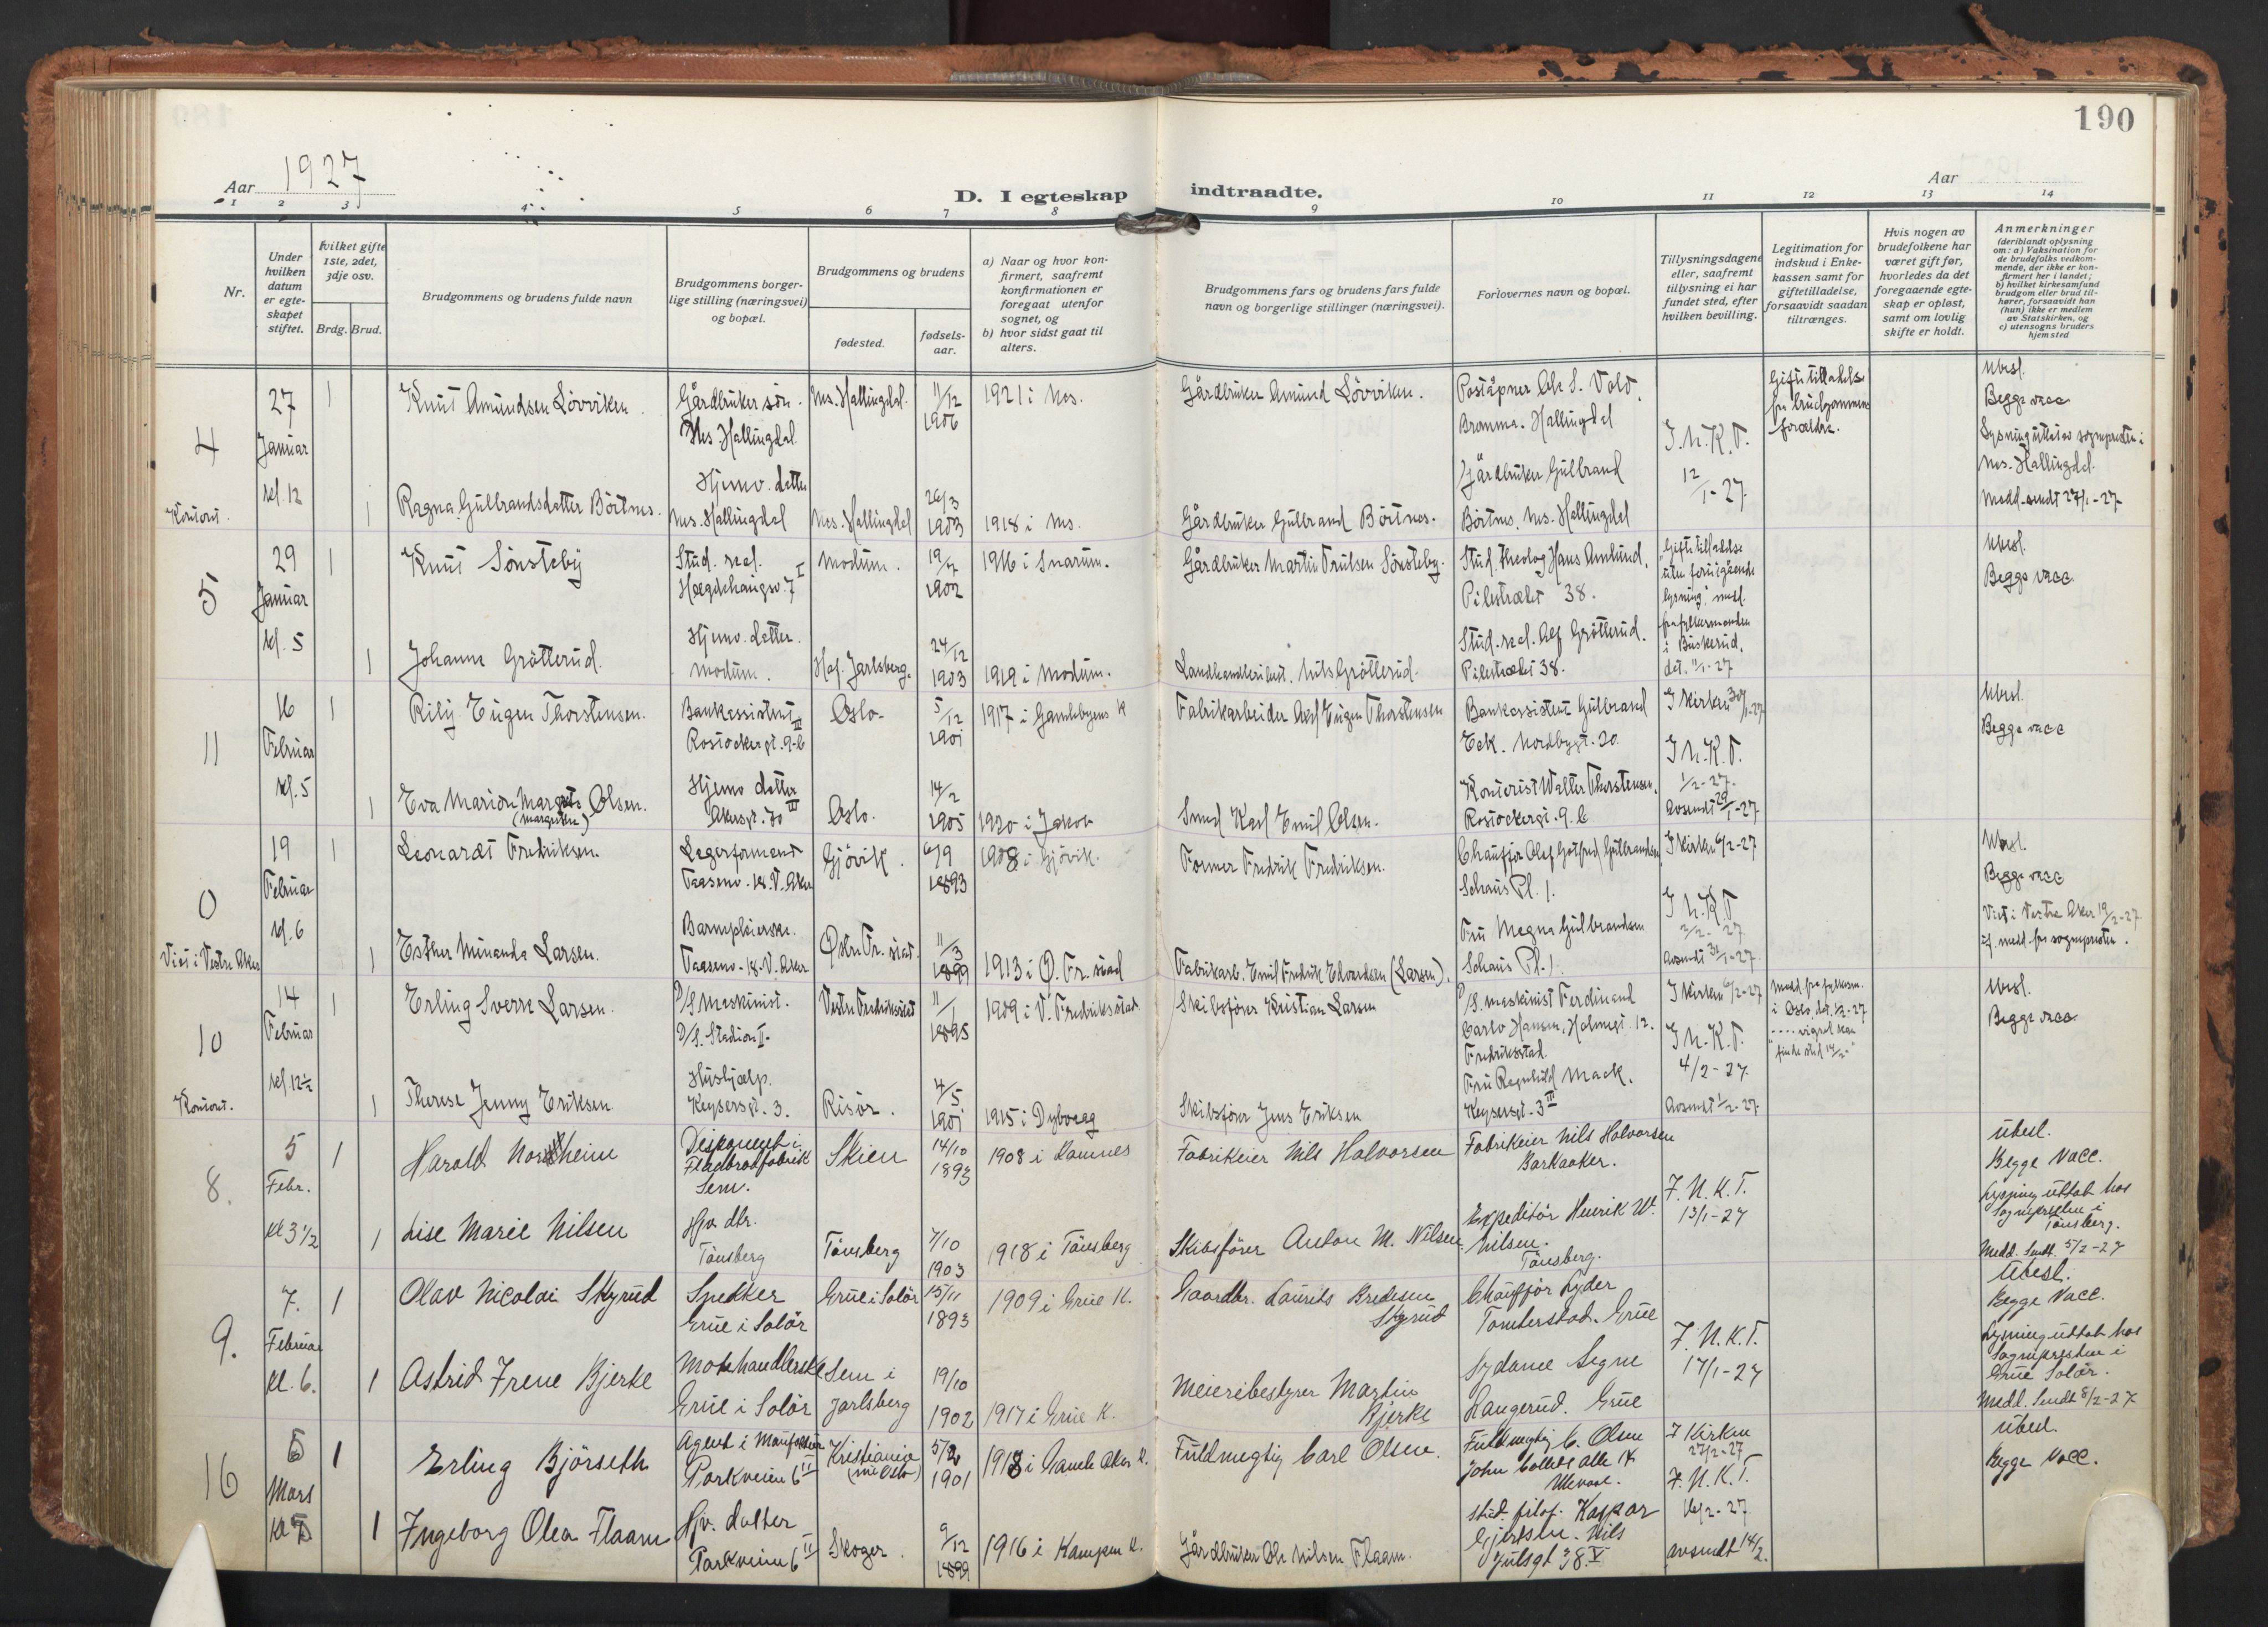 190
Aar 1927
D. I egteskap indtraadte.
Aar
1 2 3 4 5 6 7 8 9 10 11 12 13 14
Nr.
Under hvilken datum er egteskapet stiftet.
hvilket gifte 1ste, 2det, 3dje osv.
Brdg. Brud.
Brudgommens og brudens fulde navn
Brudgommens borgerlige stilling (næringsvei) og bopæl.
Brudgommens og brudens
fødested.
fødselsaar.
a) Naar og hvor konfirmert, saafremt konfirmationen er foregaat utenfor sognet, og
b) hvor sidst gaat til alters.
Brudgommens fars og brudens fars fulde navn og borgerlige stillinger (næringsvei).
Forlovernes navn og bopæl.
Tillysningsdagene eller, saafremt tillysning ei har fundet sted, efter hvilken bevilling.
Legitimation for indskud i Enkekassen samt for giftetilladelse, forsaavidt saadan tiltrænges.
Hvis nogen av brudefolkene har været gift før, hvorledes da det foregaaende egteskap er opløst, samt om lovlig skifte er holdt.
Anmerkninger
(deriblandt oplysning om: a) Vaksination for de brudefolks vedkommende, der ikke er konfirmert her i landet;
b) hvilket kirkesamfund brudgom eller brud tilhører, forsaavidt han (hun) ikke er medlem av Statskirken, og
c) utensogns bruders hjemsted
4 Kontoret.
27 Januar kl. 12
1 Knut Amundsen Lövviken.
Gårdbruker søn. Nes. Hallingdal.
Nes. Hallingdal. 11/12 1906
1921 i Nes.
Gårdbruker Amund Lövviken.
Poståpner Ole S. Vold, Bromma. Hallingdal
I.N.K.T. 12/1-27
Giftetilladelse fra brudgommens forældre.
Ubesl.
Begge vacc
Lysning uttat av sognepresten i Nes. Hallingdal.
Medd. sendt 27/1-27
1 Ragna Gulbrandsdatter Börtnes.
Hjemv. datter Nes. Hallingdal
Nes. Hallingdal 26/3 1903
1918 i Nes.
Gårdbruker Gulbrand Börtnes.
Gårdbruker Gulbrand Börtnes, Nes. Hallingdal
5
29 Januar kl. 5
1 Knut Sönsteby
Stud. real. Hægdehaugsv. 7 I
Modum. 19/7 1902
1916 i Snarum.
Gårdbruker Martin Trulsen Sönsteby.
Stud. theolog Hans Amlund, Pilestrædet 38.
"Giftetilladelse uten foruigående lysning" medd. fra fylkesmanden i Buskerud, dat. 11/1-27
Ubesl.
Begge vacc.
1 Johanne Grötterud.
Hjemv. datter. Modum.
Hof. Jarlsberg. 24/12 1903
1919 i Modum.
Landhandleribest. Nils Grötterud.
Stud. real. Alf Grötterud. Pilestrædet 38.
11
16 Februar kl. 5
1 Rily Eugen Thorstensen.
Bankassistent Rostockergt. 9-b III
Oslo. 5/12 1901
1917 i Gamlebyens K
Fabrikarbeider Axel Eugen Thorstensen
Bankassistent Gulbrand Eek. Nordbygt. 20.
I kirken 30/1-27
I.N.K.T. 1/2-27.
Avsendt 29/1-27
Ubesl.
Begge vacc
1 Eva Marion Margrete (Margrethe) Olsen.
Hjemv. datter Akersgt. 70 III
Oslo. 14/2 1905
1920 i Jakob
Smed Karl Emil Olsen.
Kontorist Walter Thorstensen, Rostockergt. 9. b
0 Viet i Vestre Aker
19 Februar kl. 6
1 Leonardt Fredriksen.
Lagerformand Taasenv. 18. V. Aker
Gjövik. 6/9 1893
1908 i Gjövik.
Former Fredrik Fredriksen.
Chauffør Olaf Gotfred Gulbrandsen Schous Pl. 1.
I kirken 6/2-27
I.N.K.T 2/2-27
Avsendt 31/1-27.
Ubesl.
Begge vacc
Viet i Vestre Aker 19/2-27 if. medd. fra sognepresten.
1 Esther Minanda Larsen.
Barnepleierske. Taasenv. 18. V. Aker
Østre Fr.stad. 11/3 1899
1913 i Ø. Fr.stad
Fabrikarb. Emil Fredrik Edvardsen (Larsen).
Fru Magna Gulbrandsen Schous Pl. 1
10 Kontoret.
14 Februar kl. 12½
1 Erling Sverre Larsen.
D/S. Maskinist. D/S. Stadion II.
Vestre Fredriksstad 11/1 1895
1909 i V. Fredriksstad.
Skibsfører Kristian Larsen
D/S. maskinist Ferdinand Carlo Hansen, Holmegt. 12. Fredriksstad.
I kirken 6/2-27
I.N.K.T. 4/2-27.
Avsendt 1/2-27.
Medd. fra fylkesm. i Oslo, dat. 1/2-27 ".... vigsel kan finde sted 14/2."
Ubesl.
Begge vacc
1 Therese Jenny Eriksen
Hushjælp. Keysersgt. 3.
Risör. 4/5 1901
1915 i Dybvaag
Skibsfører Jens Eriksen
Fru Ragnhild Mack. Keysersgt. 3 III
8.
5 Febr. kl 3 1/2
1 Harald Nordheim
Disponent i Fladbrødfabrik Sem.
Skien 14/10 1893
1908 i Ramnes
Fabrikeier Nils Halvorsen
Fabrikeier Nils Halvorsen Barkaaker.
I.N.K.T. 13/1-27
Ubesl.
Begge vacc.
Lysning uttat hos Sognepresten i Tönsberg.
Medd. Sendt. 5/2-27
1 Lise Marie Nilsen
Hjv. dtr. Tönsberg
Tönsberg 7/10 1903
1918 i Tönsberg
Skibsfører Anton M. Nilsen
Expeditör Henrik W. Nilsen. Tönsberg.
9.
7. Februar kl. 6.
1 Olav Nicolai Skyrud
Snekker Grue i Solör
Grue i Solör 15/11 1893
1909 i Grue K.
Gaardbr. Laurits Bredesen Skyrud
Chauffør Lyder Tomterstad. Grue
I.N.K.T. 17/1-27
Ubesl.
Begge vacc.
Lysning uttat hos Sognepresten i Grue Solör.
Medd. Sendt 8/2-27
1 Astrid Irene Bjerke
Motehandlerske Grue i Solör
Sem i Jarlsberg 19/10 1902
1917 i Grue K.
Meieribestyrer Martin Bjerke
Sydame Signe Langerud. Grue
16
5 Mars kl 5
1 Erling Björseth
Agent i Manufaktur Parkveien 6 II
Kristiania (nu Oslo) 5/2 1901
1918 i Gamle Aker K.
Fuldmegtig Carl Olsen.
Fuldmegtig C. Olsen John Colletts alle 14 Ullevaal.
I Kirken 27/2-27
I.N.K.T. 16/2-27
avsendt 14/2.
Ubesl.
Begge vacc.
1 Ingeborg Olea Flaam
Hjv. datter Parkveien 6 II
Skoger. 9/12 1899
1916 i Kampen K.
Gårdbruker Ole Nilsen Flaam.
Stud. filol. Kaspar Gjertsen. Nils Juelsgt 38. V